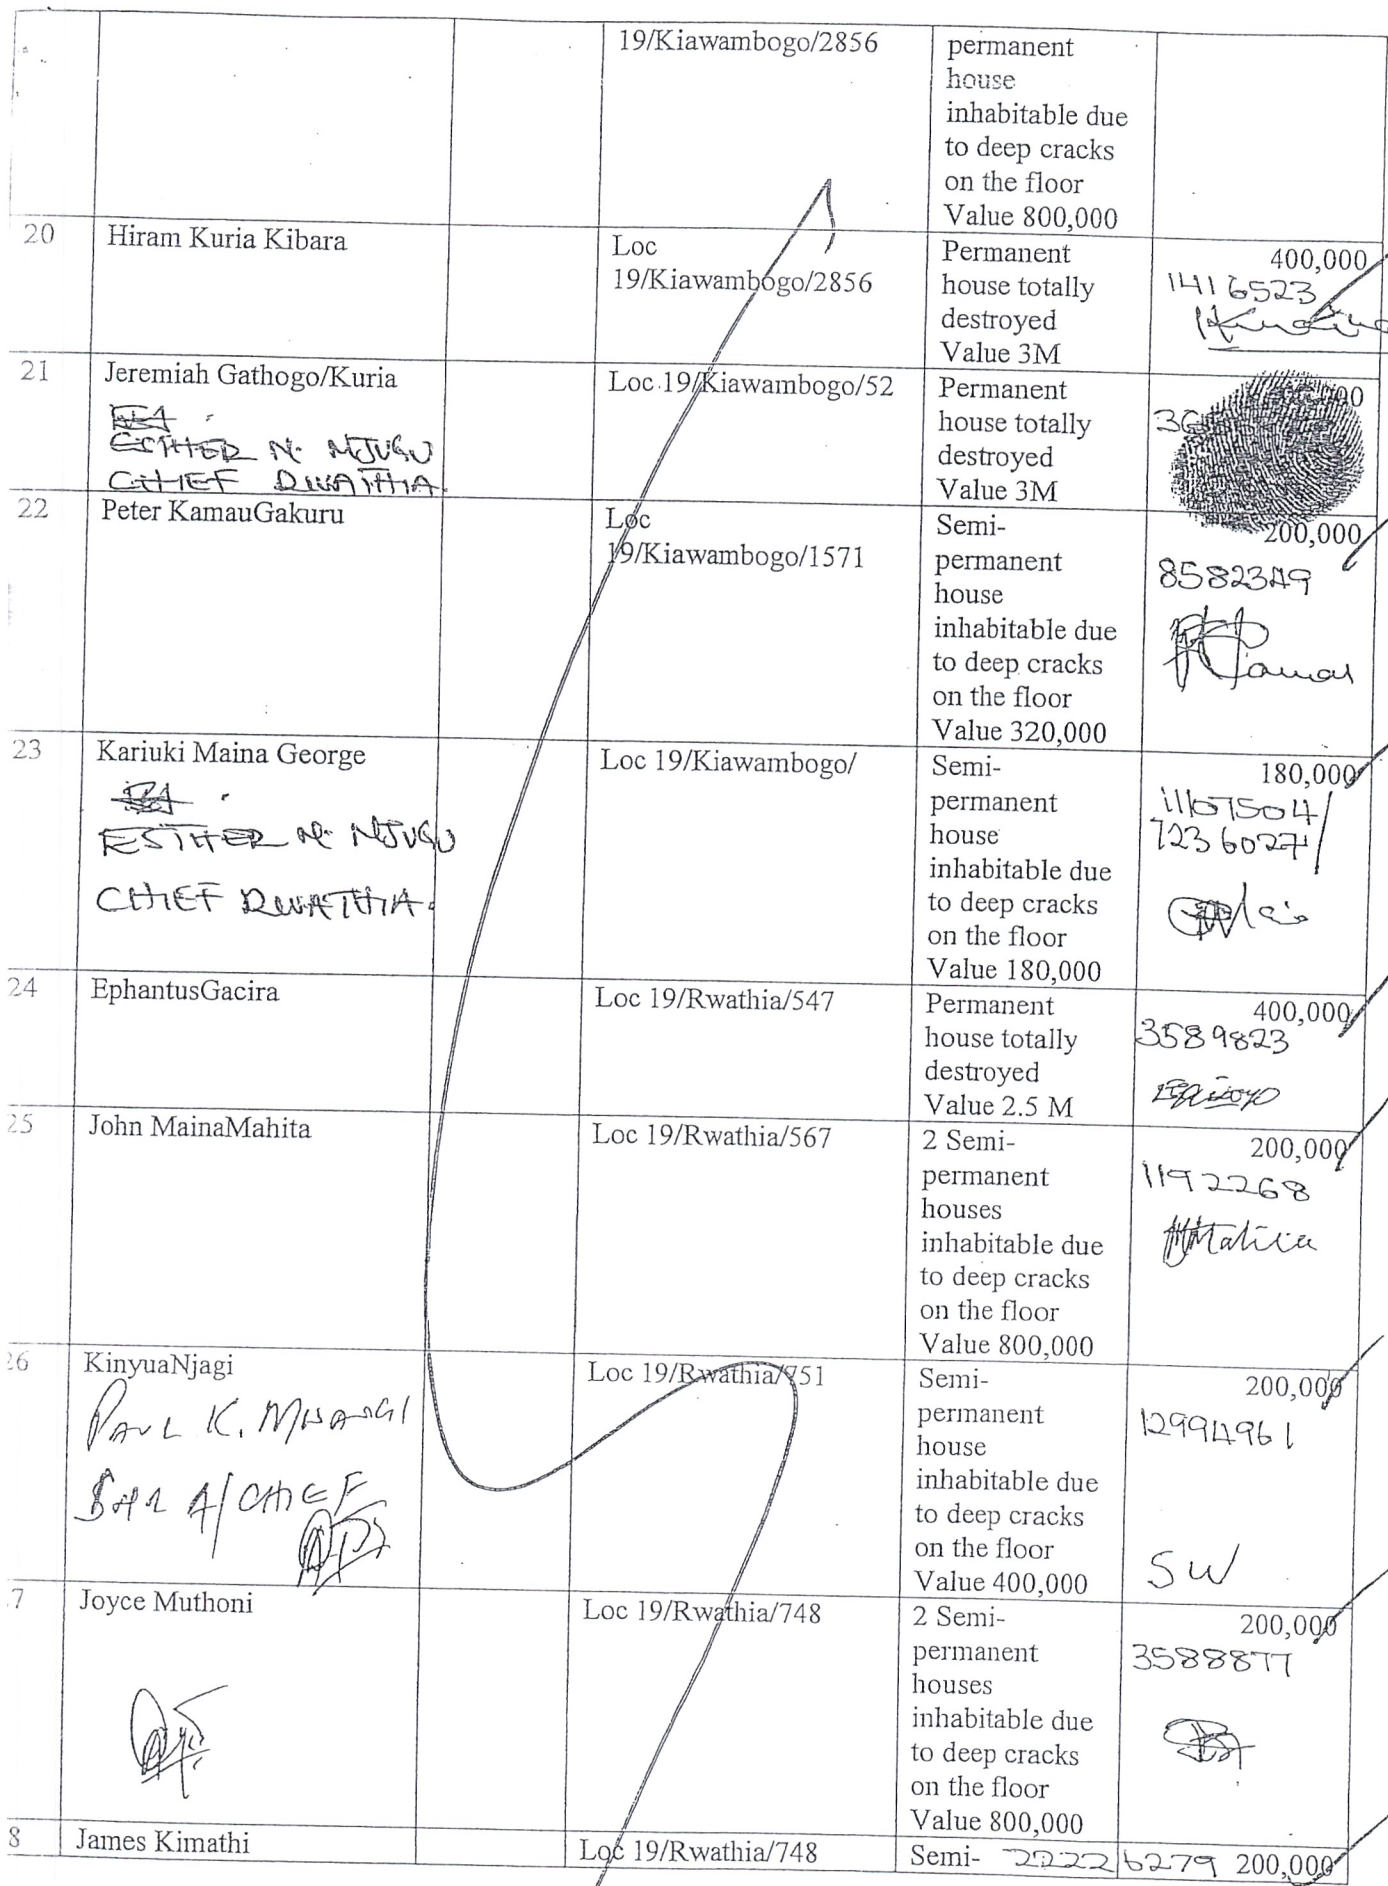 19/Kiawambogo/2856
permanent
house
inhabitable due
to deep cracks
on the floor
Value 800,000
20
Hiram Kuria Kibara
Loc
19/Kiawambogo/2856
Permanent
house totally
destroyed
Value 3M
400,000
1416523
21
Jeremiah Gathogo/Kuria
ESTHER N. NJUGU
CHIEF RWATHIA
Loc 19/Kiawambogo/52
Permanent
house totally
destroyed
Value 3M
22
Peter KamauGakuru
Loc
19/Kiawambogo/1571
Semi-
permanent
house
inhabitable due
to deep cracks
on the floor
Value 320,000
200,000
8582349
23
Kariuki Maina George
ESTHER N. NJUGU
CHIEF RWATHIA.
Loc 19/Kiawambogo/
Semi-
permanent
house
inhabitable due
to deep cracks
on the floor
Value 180,000
180,000
11107504/
7236027/
24
EphantusGacira
Loc 19/Rwathia/547
Permanent
house totally
destroyed
Value 2.5 M
400,000
3589823
25
John MainaMahita
Loc 19/Rwathia/567
2 Semi-
permanent
houses
inhabitable due
to deep cracks
on the floor
Value 800,000
200,000
1192268
26
KinyuaNjagi
PAUL K. MWANGI
A/CHIEF
Loc 19/Rwathia/751
Semi-
permanent
house
inhabitable due
to deep cracks
on the floor
Value 400,000
200,000
12994961
SW
7
Joyce Muthoni
Loc 19/Rwathia/748
2 Semi-
permanent
houses
inhabitable due
to deep cracks
on the floor
Value 800,000
200,000
3588877
8
James Kimathi
Loc 19/Rwathia/748
Semi-
22226279
200,000